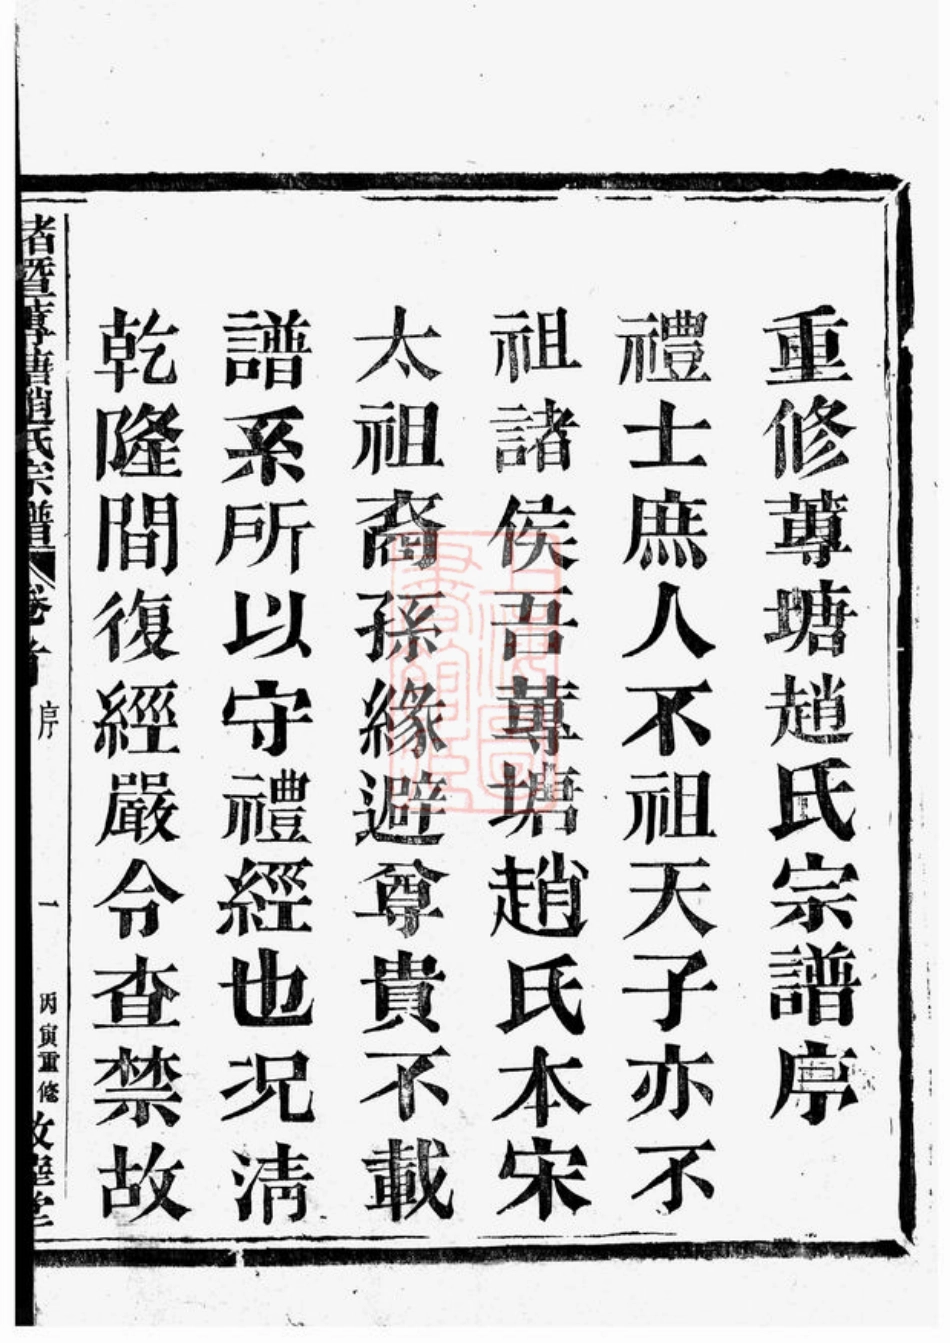 重修蓴塘趙氏宗譜序
禮士庶人不祖天子亦不
祖諸侯吾蓴塘趙氏本宋
太祖裔孫緣避尊貴不載
譜系所以守禮經也况淸
乾隆間復經嚴令查禁故
諸暨蓴塘趙氏宗譜 卷首 序 一 丙寅重修